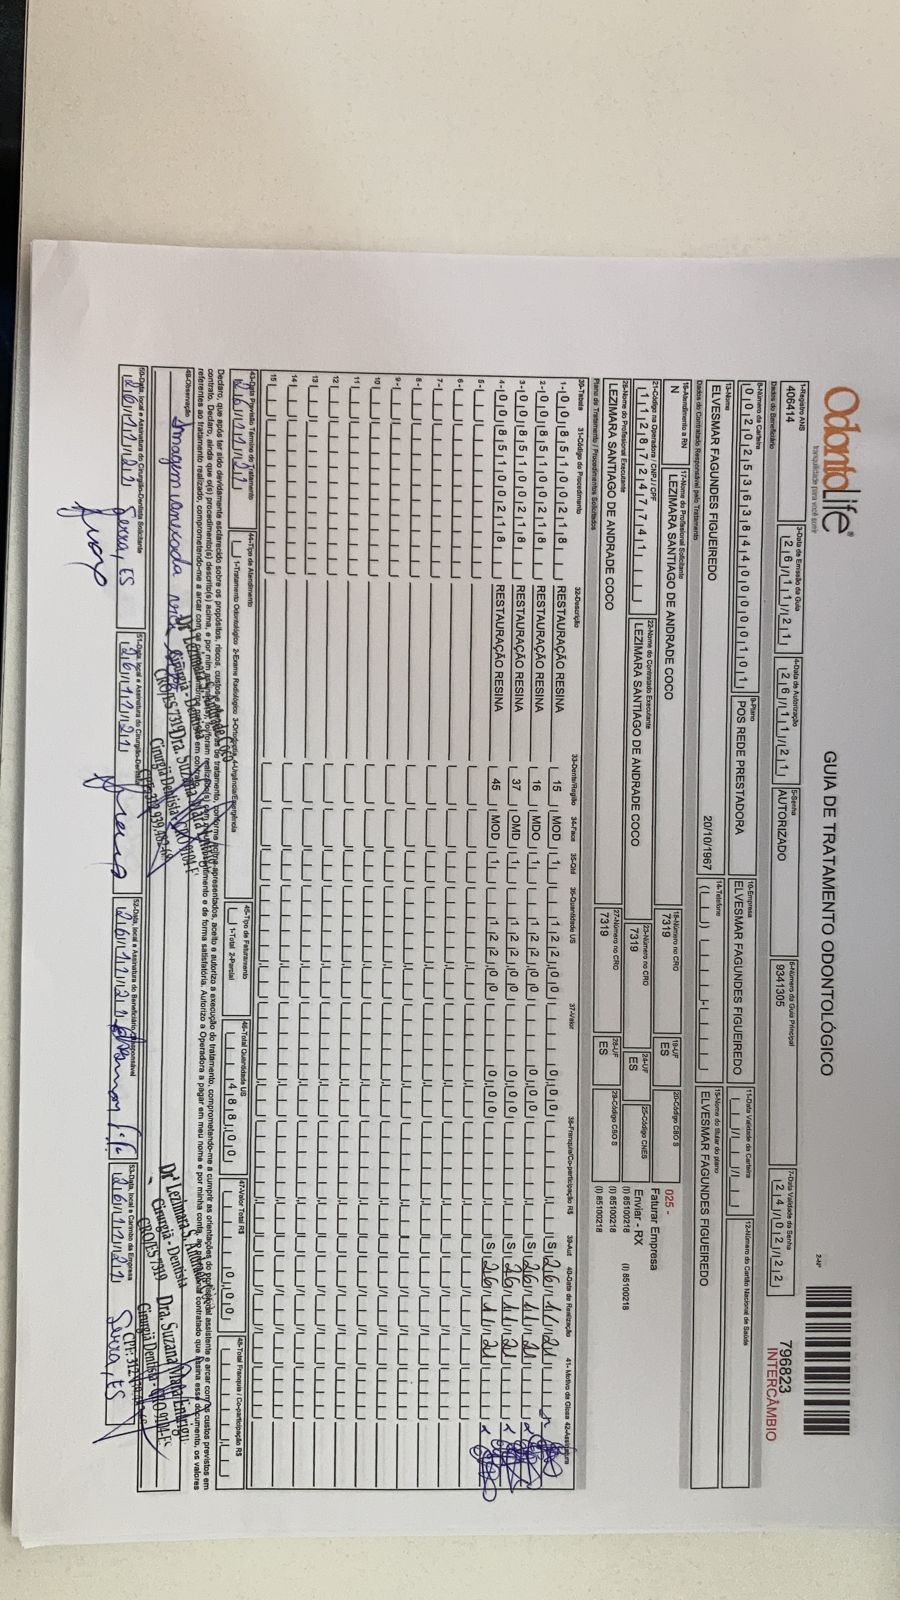 OdontoLife®
tranquilidade para você sorrir
GUIA DE TRATAMENTO ODONTOLÓGICO
2-Nº
796823
INTERCÂMBIO
1-Registro ANS
406414
3-Data de Emissão da Guia
26/11/21
4-Data de Autorização
26/11/21
5-Senha
AUTORIZADO
6-Número da Guia Principal
9341305
7-Data Validade da Senha
24/02/22
Dados do Beneficiário
8-Número da Carteira
9-Plano
POS REDE PRESTADORA
10-Empresa
ELVESMAR FAGUNDES FIGUEIREDO
11-Data Validade da Carteira
12-Número do Cartão Nacional de Saúde
13-Nome
ELVESMAR FAGUNDES FIGUEIREDO
20/10/1967
14-Telefone
15-Nome do titular do plano
ELVESMAR FAGUNDES FIGUEIREDO
Dados do Contratado Responsável pelo Tratamento
16-Atendimento a RN
N
17-Nome do Profissional Solicitante
LEZIMARA SANTIAGO DE ANDRADE COCO
18-Número no CRO
7319
19-UF
ES
20-Código CBO S
025 -
Faturar Empresa
21-Código na Operadora / CNPJ / CPF
11287247741
22-Nome do Contratado Executante
LEZIMARA SANTIAGO DE ANDRADE COCO
23-Número no CRO
7319
24-UF
ES
25-Código CNES
Enviar - RX
(I) 85100218 (I) 85100218
26-Nome do Profissional Executante
LEZIMARA SANTIAGO DE ANDRADE COCO
27-Número no CRO
7319
28-UF
ES
29-Código CBO S
(I) 85100218
(I) 85100218
Plano de Tratamento / Procedimentos Solicitados
30-Tabela 31-Código do Procedimento 32-Descrição 33-Dente/Região 34-Face 35-Qtd 36-Quantidade US 37-Valor 38-Franquia/Co-participação R$ 39-Aut 40-Data de Realização 41- Motivo da Glosa 42-Assinatura
1- 00 85100218 RESTAURAÇÃO RESINA 15 MOD 1 122,00 0,00 S 26/11/21
2- 00 85100218 RESTAURAÇÃO RESINA 16 MDO 1 122,00 0,00 S 26/11/21
3- 00 85100218 RESTAURAÇÃO RESINA 37 OMD 1 122,00 0,00 S 26/11/21
4- 00 85100218 RESTAURAÇÃO RESINA 45 MOD 1 122,00 0,00 S 26/11/21
5-
6-
7-
8-
9-
10
11
12
13
14
15
43-Data Previsão Término do Tratamento
26/11/21
44-Tipo de Atendimento
1-Tratamento Odontológico 2-Exame Radiológico 3-Ortodontia 4-Urgência/Emergência
45-Tipo de Faturamento
1-Total 2-Parcial
46-Total Quantidade US
488,00
47-Valor Total R$
0,00
48-Total Franquia / Co-participação R$
Declaro, que após ter sido devidamente esclarecido sobre os propósitos, riscos, custos e alternativas de tratamento, conforme acima apresentados, aceito e autorizo a execução do tratamento, comprometendo-me a cumprir as orientações do profissional assistente e arcar com os custos previstos em
contrato. Declaro, ainda que o(s) procedimento(s) descrito(s) acima, e por mim assinado(s), foi/foram realizado(s) com meu consentimento e de forma satisfatória. Autorizo a Operadora a pagar em meu nome e por minha conta, ao profissional contratado que assina esse documento, os valores
referentes ao tratamento realizado, comprometendo-me a arcar com os custos conforme previsto em contrato.
49-Observação
Imagem anexada
Drª Lezimara S. Andrade Coco
Cirurgiã - Dentista
CRO/ES 7319
Dra. Suzana
Cirurgiã Dentista - CRO 9104-ES
Drª Lezimara S. Andrade
Cirurgiã - Dentista
CRO/ES 7319
Dra. Suzana
Cirurgiã Dentista - CRO 9104-ES
50-Data, local e Assinatura do Cirurgião-Dentista Solicitante
26/11/21 Serra, ES
51-Data, local e Assinatura do Cirurgião-Dentista
26/11/21
52-Data, local e Assinatura do Beneficiário/Responsável
26/11/21
53-Data, local e Carimbo da Empresa
26/11/21 Serra, ES